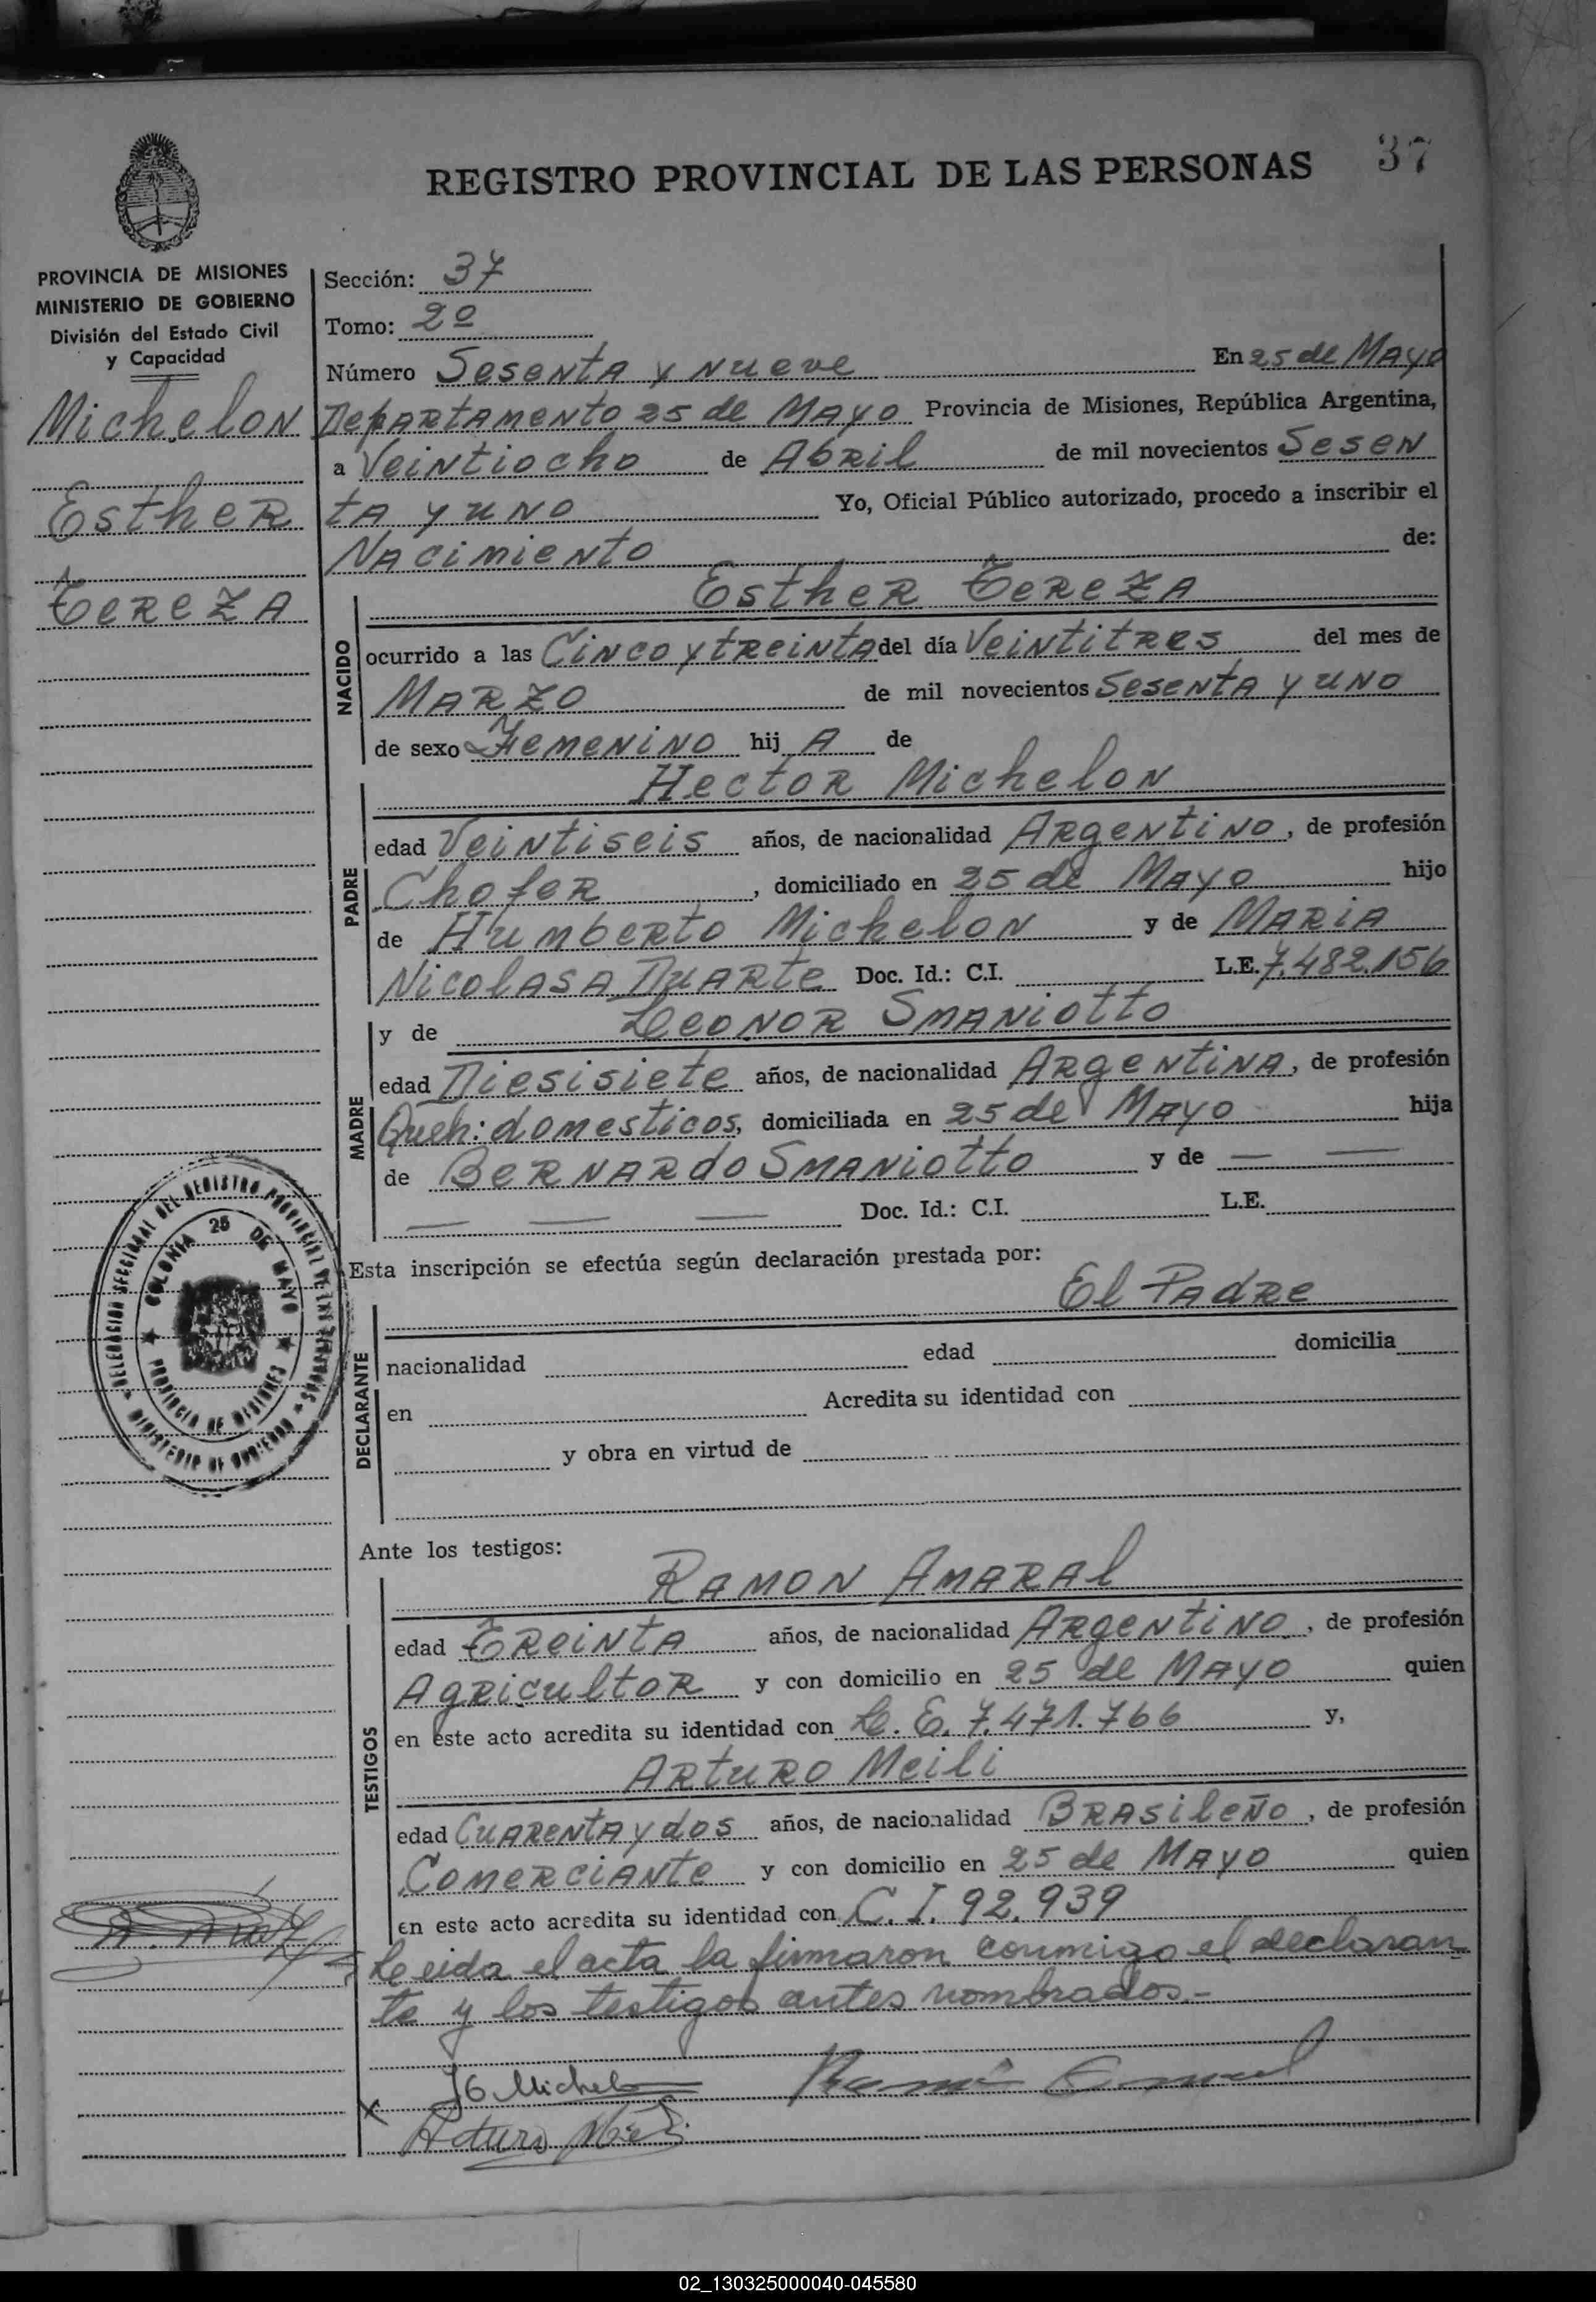 37
REGISTRO PROVINCIAL DE LAS PERSONAS
PROVINCIA DE MISIONES
MINISTERIO DE GOBIERNO
División del Estado Civil
y Capacidad
Michelon
Esther
Tereza
Sección: 37
Tomo: 2º
Número Sesenta y nueve En 25 de Mayo
Departamento 25 de Mayo Provincia de Misiones, República Argentina,
a Veintiocho de Abril de mil novecientos Sesen
ta y uno Yo, Oficial Público autorizado, procedo a inscribir el
Nacimiento de:
Esther Tereza
NACIDO
ocurrido a las Cinco y treinta del día Veintitres del mes de
Marzo de mil novecientos Sesenta y uno
de sexo Femenino hij A de
Hector Michelon
PADRE
edad Veintiseis años, de nacionalidad Argentino, de profesión
Chofer, domiciliado en 25 de Mayo hijo
de Humberto Michelon y de Maria
Nicolasa Duarte Doc. Id.: C.I. L.E. 7.482.156
y de Leonor Smaniotto
MADRE
edad Diesisiete años, de nacionalidad Argentina, de profesión
Queh: domesticos, domiciliada en 25 de Mayo hija
de Bernardo Smaniotto y de — —
— — — Doc. Id.: C.I. L.E.
DELEGACION SECCIONAL DEL REGISTRO PROVINCIAL DE LAS PERSONAS
MINISTERIO DE GOBIERNO
COLONIA 25 DE MAYO
PROVINCIA DE MISIONES
Esta inscripción se efectúa según declaración prestada por:
El Padre
DECLARANTE
nacionalidad edad domicilia
en Acredita su identidad con
y obra en virtud de
Ante los testigos:
Ramon Amaral
TESTIGOS
edad Treinta años, de nacionalidad Argentino, de profesión
Agricultor y con domicilio en 25 de Mayo quien
en este acto acredita su identidad con L. E. 7.471.766 y,
Arturo Meili
edad Cuarenta y dos años, de nacionalidad Brasileño, de profesión
Comerciante y con domicilio en 25 de Mayo quien
en este acto acredita su identidad con C. I. 92.939
Leida el acta la firmaron conmigo el declaran
te y los testigos antes nombrados.-
Michelon
Ramón Amaral
x
Arturo Meili
02_130325000040-045580